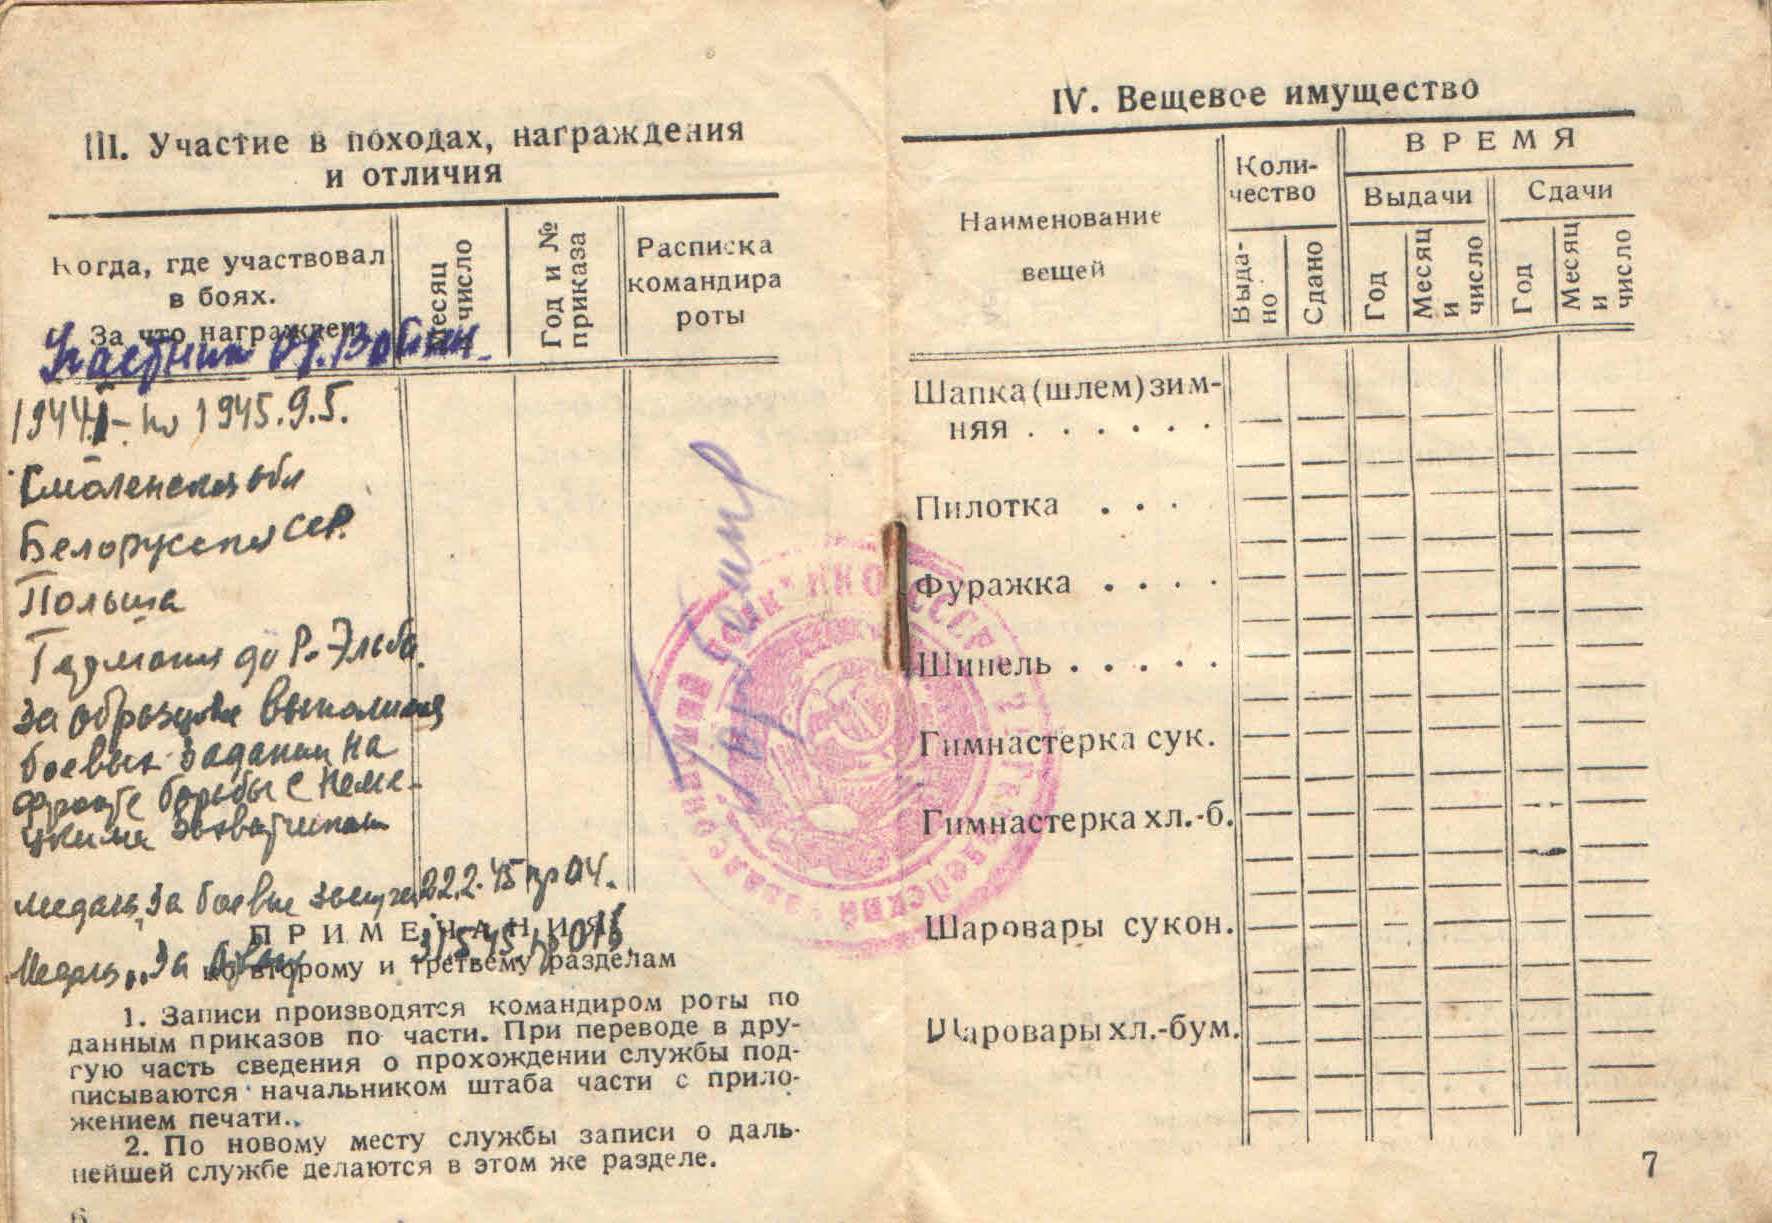 III. Участие в походах, награждения
и отличия
Когда, где участвовал
в боях.
За что награжден
Месяц
и число
Год и №
приказа
Расписка
командира
роты
Участник От. Войны.
1944. - по 1945.9.5.
Смоленская обл
Белорусская ССР.
Польша
Германия до р. Эльба.
За образцовое выполнение
боевых заданий на
фронте борьбы с неме-
цкими захватчиками
медаль „За боевые заслуги 22.2.45 пр 04.
Медаль „За 31.5.45
ПРИМЕЧАНИЯ
ко второму и третьему разделам
1. Записи производятся командиром роты по
данным приказов по части. При переводе в дру-
гую часть сведения о прохождении службы под-
писываются начальником штаба части с прило-
жением печати.
2. По новому месту службы записи о даль-
нейшей службе делаются в этом же разделе.
6
IV. Вещевое имущество
Наименование
вещей
Коли-
чество
ВРЕМЯ
Выдачи
Сдачи
Выда-
но
Сдано
Год
Месяц
и
число
Год
Месяц
и
число
Шапка (шлем) зим-
няя . . . . . .
Пилотка . . .
Фуражка . . . .
Шинель . . . . .
Гимнастерка сук.
Гимнастерка хл.-б.
Шаровары сукон.
Шаровары хл.-бум.
7
НКО СССР